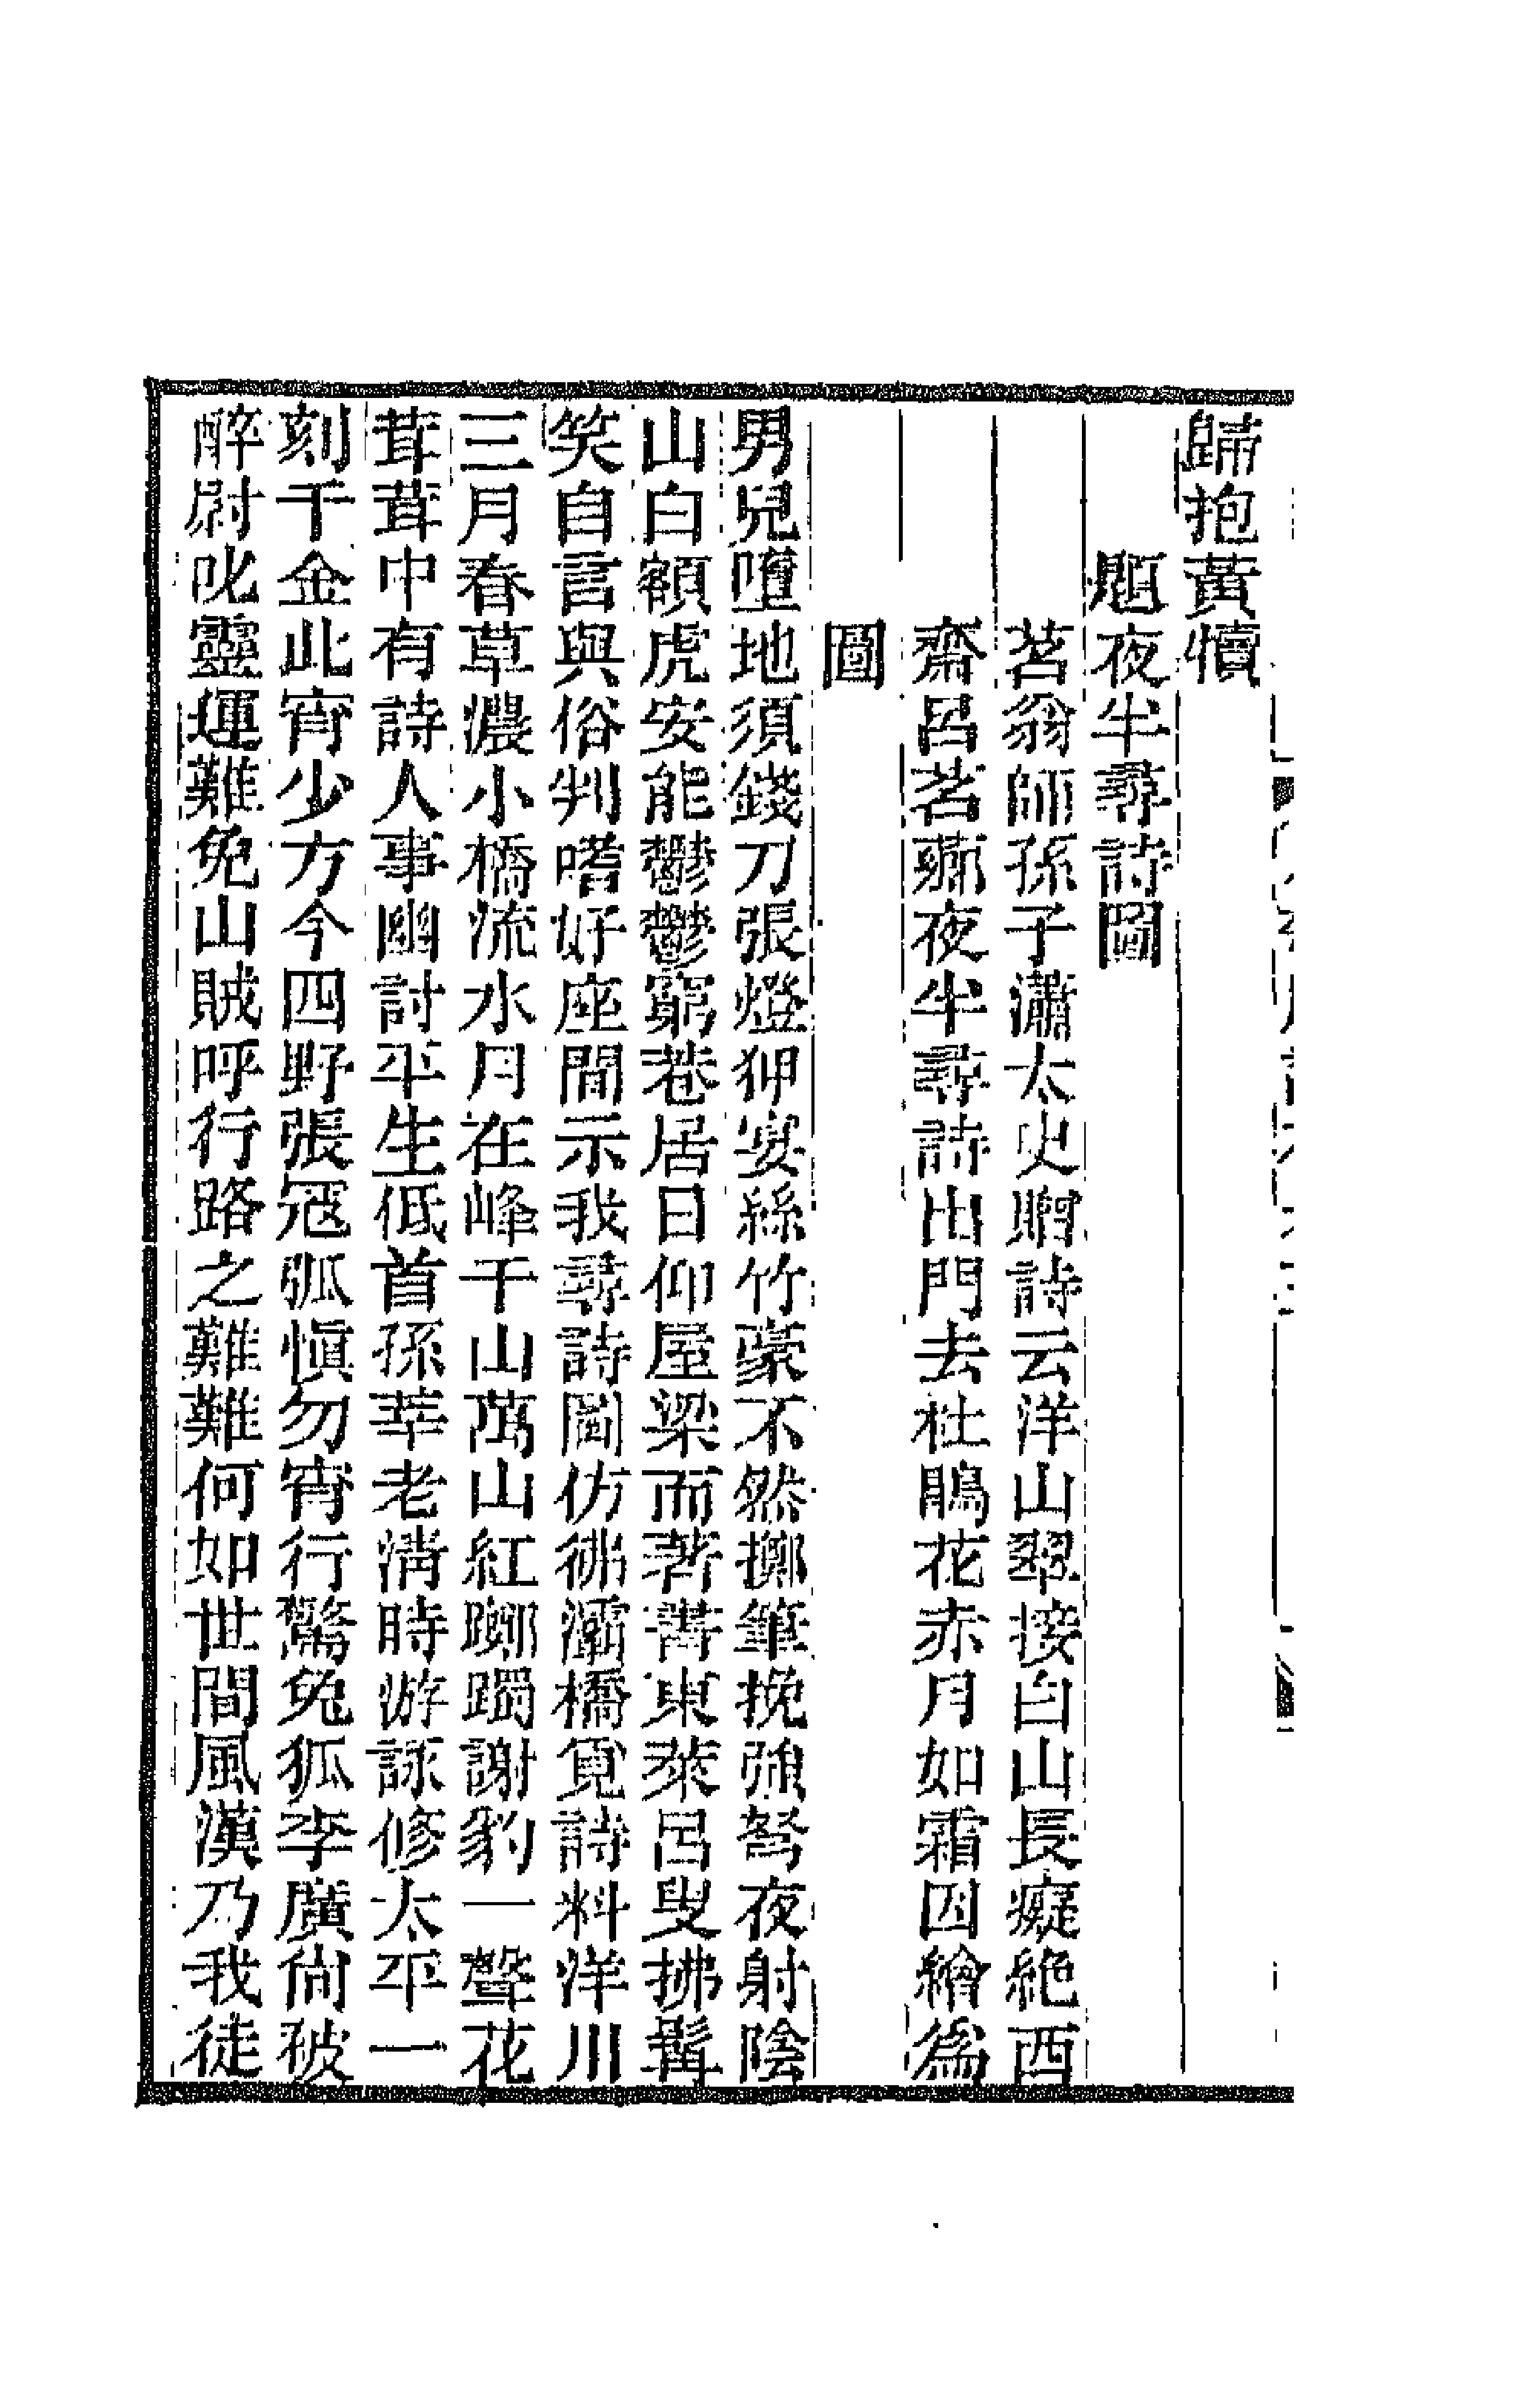 歸抱黃犢
題夜半尋詩圖
茗翁師孫子瀟太史贈詩云洋山翠接白山長癡絶西
齋呂茗薌夜半尋詩出門去杜鵑花赤月如霜因繪爲
圖
男兒墮地須錢刀張燈狎宴絲竹豪不然擲筆挽強弩夜射陰
山白額虎安能鬱鬱窮巷居日仰屋梁而著書東萊呂叟拂髯
笑自言與俗判嗜好座間示我尋詩圖仿彿灞橋覓詩料洋川
三月春草濃小橋流水月在峰千山萬山紅躑躅謝豹一聲花
茸茸中有詩人事幽討平生低首孫莘老淸時游詠修太平一
刻千金此宵少方今四野張寇弧愼勿宵行驚兔狐李廣尙被
醉尉叱靈運難免山賊呼行路之難難何如世間風漢乃我徒